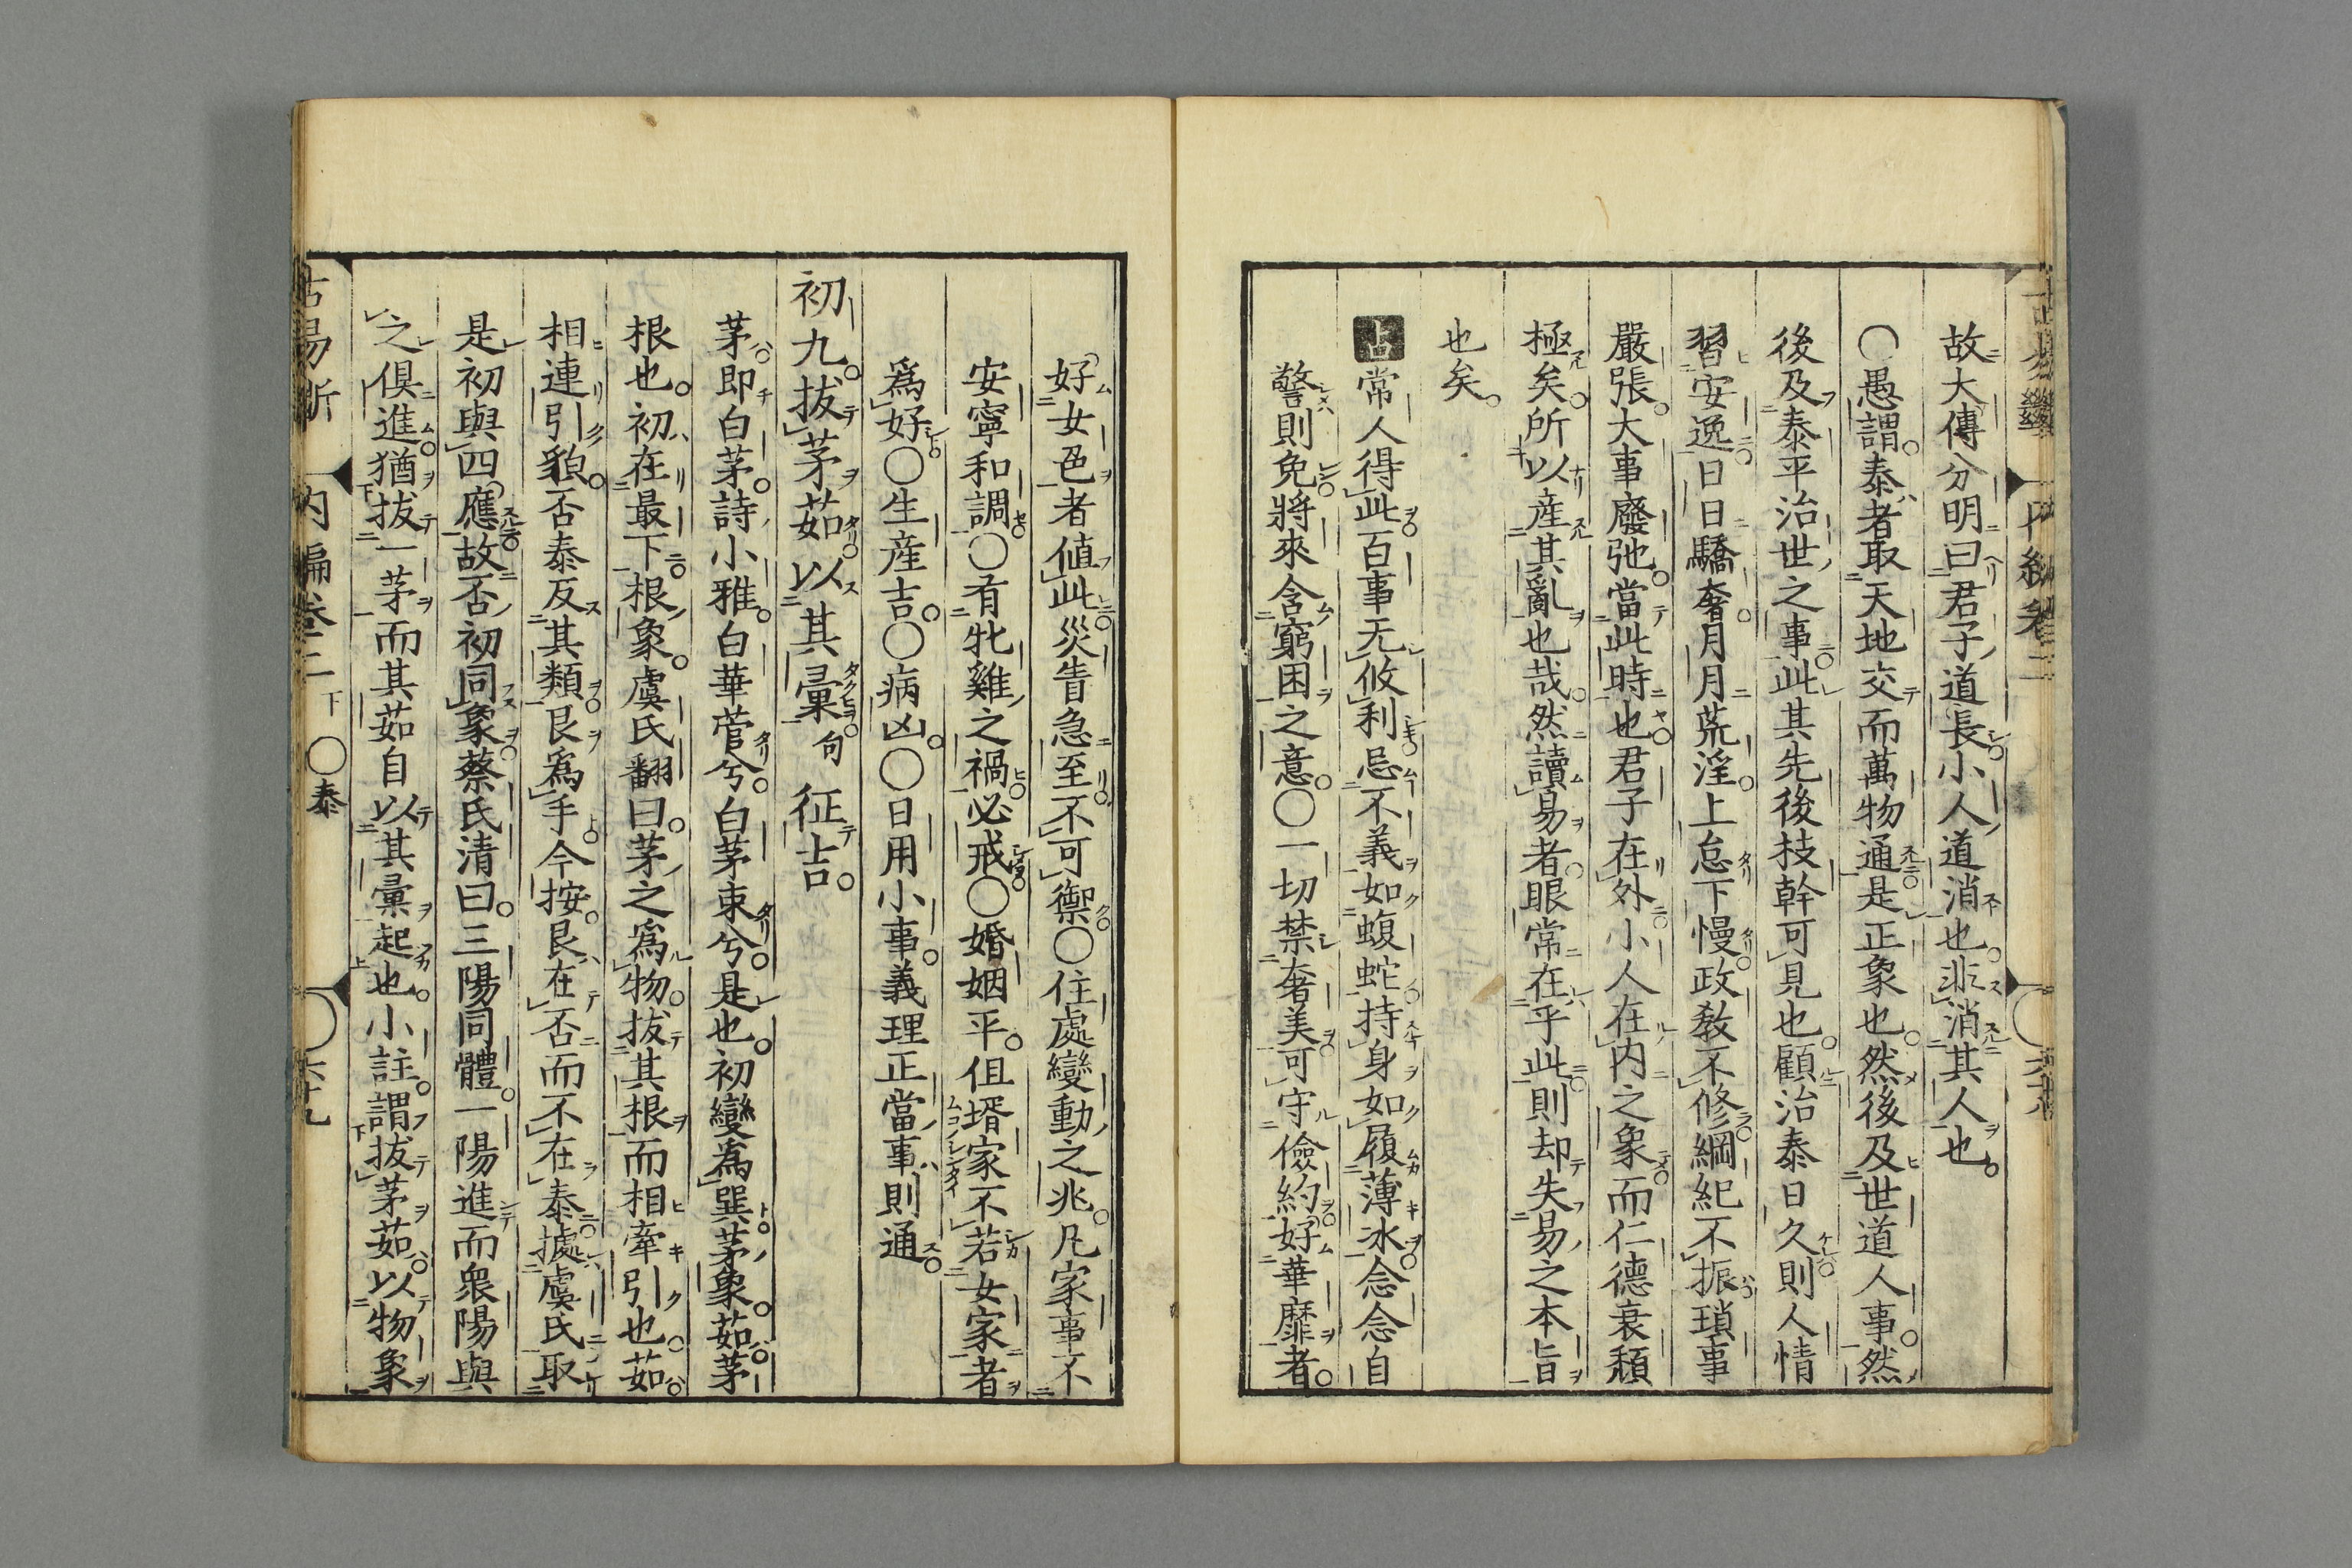 故大傳分明曰君子道長小人道消也非消其人也
○愚謂泰者取天地交而萬物通是正象也然後及世道人事然
後及泰平治世之事此其先後枝幹可見也顧治泰日久則人情
習安逸日日驕奢月月荒淫上怠下慢政敎不修綱紀不振瑣事
嚴張大事廢弛當此時也君子在外小人在内之象而仁德衰頽
極矣所以産其亂也哉然讀易者眼常在乎此則却失易之本旨
也矣
占常人得此百事无攸利忌不義如蝮蛇持身如履薄冰念念自
警則免將來含窮困之意○一切禁奢美可守儉約好華靡者
好女色者値此災眚急至不可禦○住處變動之兆凡家事不
安寧和調○有牝雞之禍必戒○婚姻平但壻家不若女家者
爲好○生産吉○病凶○日用小事義理正當事則通
初九拔茅茹以其彙句征吉
茅即白茅詩小雅白華菅兮白茅束兮是也初變爲巽茅象茹茅
根也初在最下根象虞氏翻曰茅之爲物拔其根而相牽引也茹
相連引貌否泰反其類艮爲手今按艮在否而不在泰據虞氏取
是初與四應故否初同象蔡氏清曰三陽同體一陽進而衆陽與
之俱進猶拔一茅而其茹自以其彙起也小註謂拔茅茹以物象
古易斷 内編卷二 下 ○泰 ○六十九